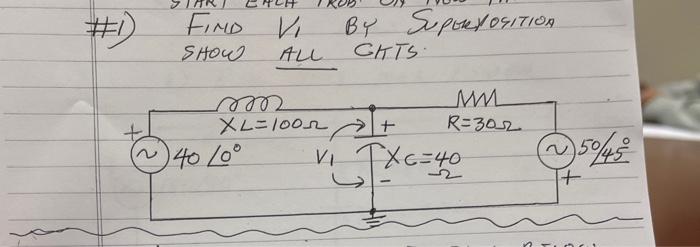 START EACH PROB ON NEW
#1) FIND V1 BY SUPERPOSITION
SHOW ALL CKTS.
XL=100Ω + R=30Ω
+ 40 /0° V1 XC=40 Ω 50/45°
- +